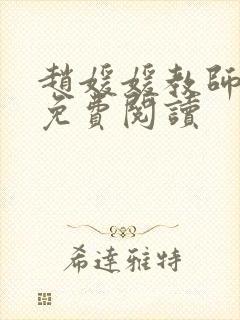 趙媛媛教師
免費閱讀
希達雅特